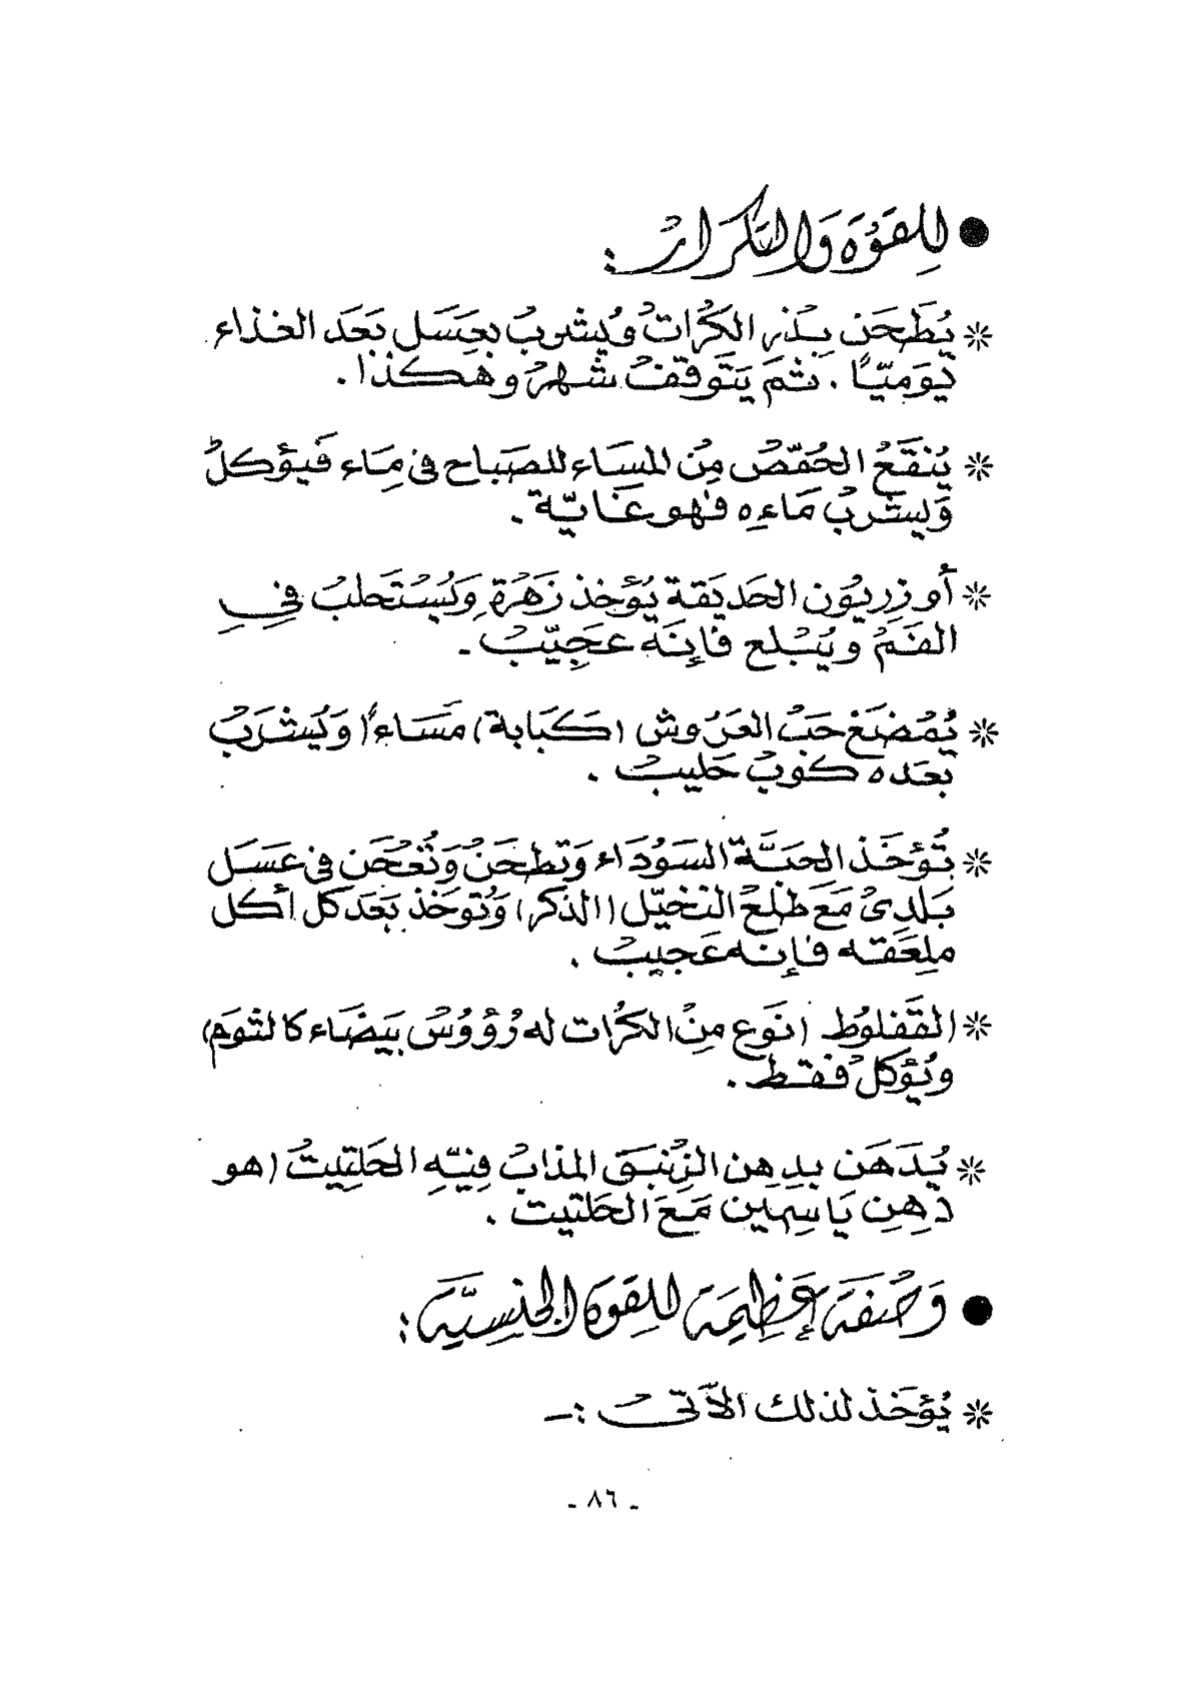 ● لِلقُوَّةِ وَالتَّكرَار :
* يُطحَن بِذر الكرَّاتْ ويُشربُ بعَسَل بَعَد الغذاء
يَوميّاً . ثمَ يَتَوقفْ شهرُ وهكذا .
* يُنقَعُ الحُمّصْ مِن المسَاء للصبَاح فى مِاء فَيؤكلُ
وَيشرَبُ مَاءِه فهو غَايّة .
* أو زِريُون الحَديَقة يُؤخذ زَهَرُة وَيُسْتَحلبُ فِي
الفَمُ ويُبْلع فإنَه عَجِيّبُ .
* يُمْضَغ حَبُ العَرُوش (كَبَابة) مَسَاءاً وَيُشرَبُ
بعَده كوبُ حَليبُ .
* تُؤخَذ الحَبَّة السَوُدَاء وَتطحَنُ وَتُعْجَن فى عَسَل
بَلَدِىُ مَعَ طلِعُ النخيّل (الذكر) وَتُؤخذ بَعَد كل أكل
ملِعَقه فإنه عَجيبُ .
* القَفلوُط (نَوَع مِنُ الكرُات له رُؤوُسْ بَيضَاء كالثوَم)
ويُؤكلُ فقط .
* يُدَهَن بدِهن الزنُبَق المذابُ فِيّهِ الحَلتِيتُ (هو
دِهِن يَاسِمين مَعَ الحَلتيت .
● وَصْفَة عَظِيمَة لِلقِوَة الجنسِيَّة :
* يُؤخَذ لذلك الآتىُ :ـ
ـ ٨٦ ـ